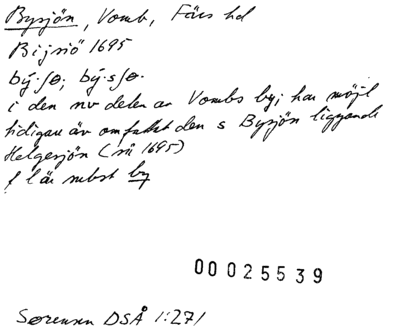 Bysjön, Vomb, Färs hd
Bijsiö 1695
bý·ʃɵ; bý·sʃɵ·
i den nv delen av Vombs by; har möjl
tidigare äv omfattat den s Bysjön liggande
Helgesjön (nu 1695)
f l är subst by
00025539
Sørensen DSÅ 1:271